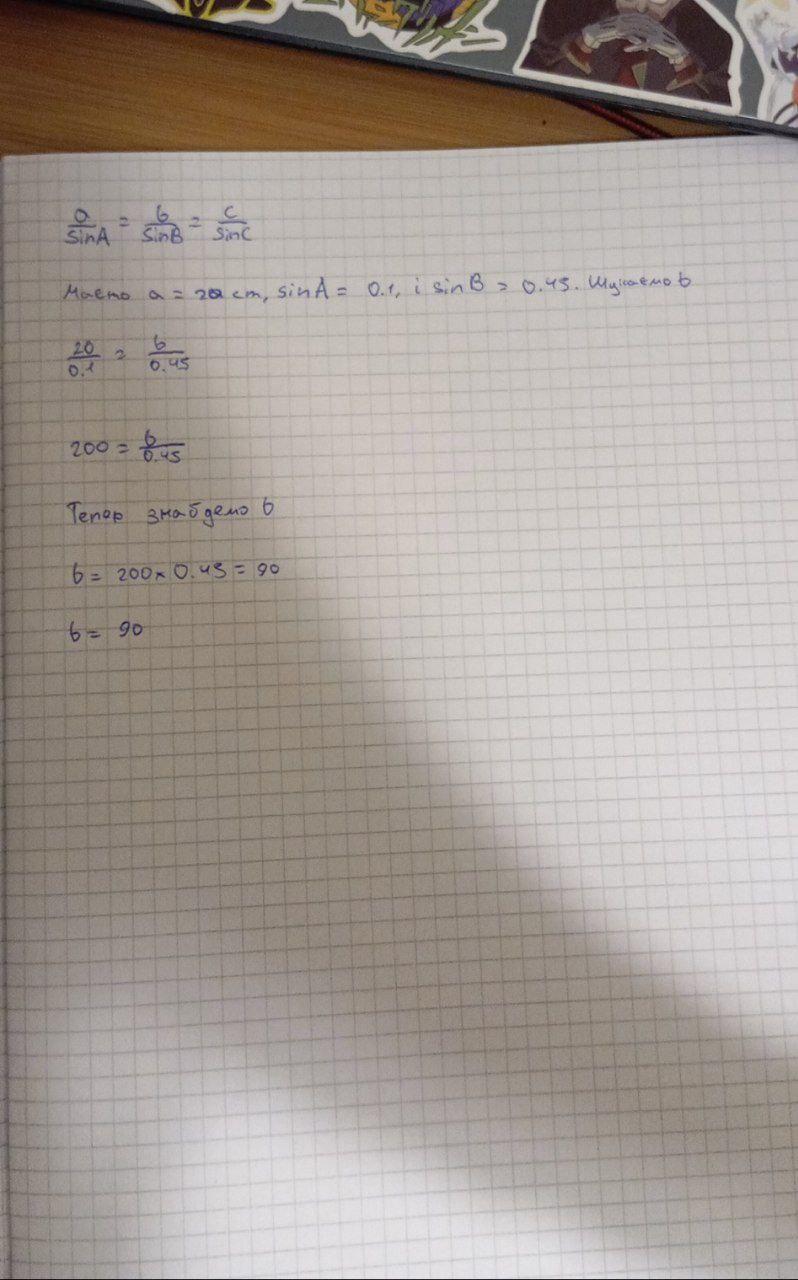 a/sinA = b/sinB = c/sinC
Маємо a = 20 cm, sinA = 0.1, і sinB = 0.45. Шукаємо b
20/0.1 = b/0.45
200 = b/0.45
Тепер знайдемо b
b = 200 × 0.45 = 90
b = 90